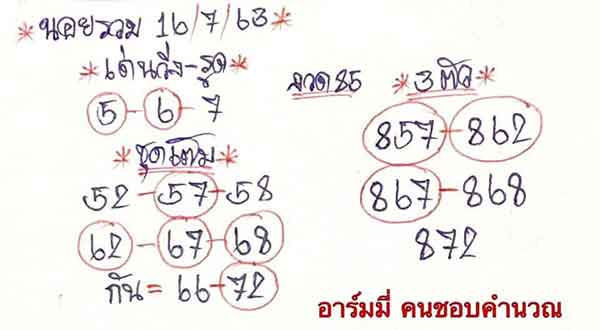 *หอยรวม 16/7/63
*เด่นวิ่ง-รูด*
5-6-7
*ชุดเต็ม*
52-57-58
62-67-68
กัน=66-72
งวด 85
*3 ตัว*
857-862
867-868
872
อาร์มมี่ คนชอบคำนวณ